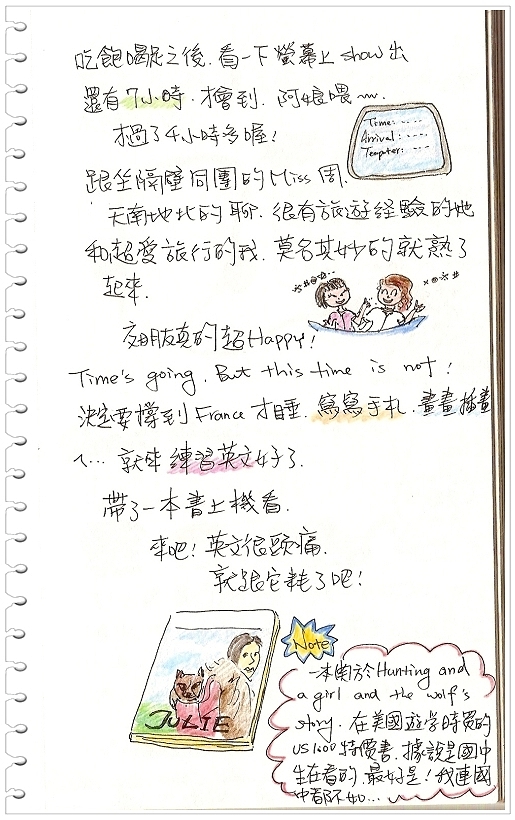 吃飽喝足之後.看一下螢幕上show出
還有7小時.才會到.阿娘喂~~
才過了4小時多喔!
Time: ----
Arrival: ----
Tempter: ---
跟坐隔壁同團的Miss周.
天南地北的聊.很有旅遊經驗的她
和超愛旅行的我.莫名其妙的就熟了
起來.
交朋友真的超Happy!
Time's going. But this time is not!
決定要撐到France才睡.寫寫手札.畫畫插畫
ㄟ...就來練習英文好了.
帶了一本書上機看.
來吧!英文很頭痛.
就跟它耗了吧!
JULIE
Note
一本關於Hunting and
a girl and the wolf's
story.在美國遊學時買的
US特價書.據說是國中
生在看的.最好是!我連國
中都不如...